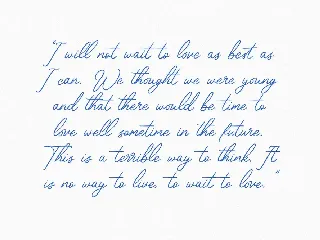 "I will not wait to love as best as
I can. We thought we were young
and that there would be time to
love well sometime in the future.
This is a terrible way to think. It
is no way to live, to wait to love. "